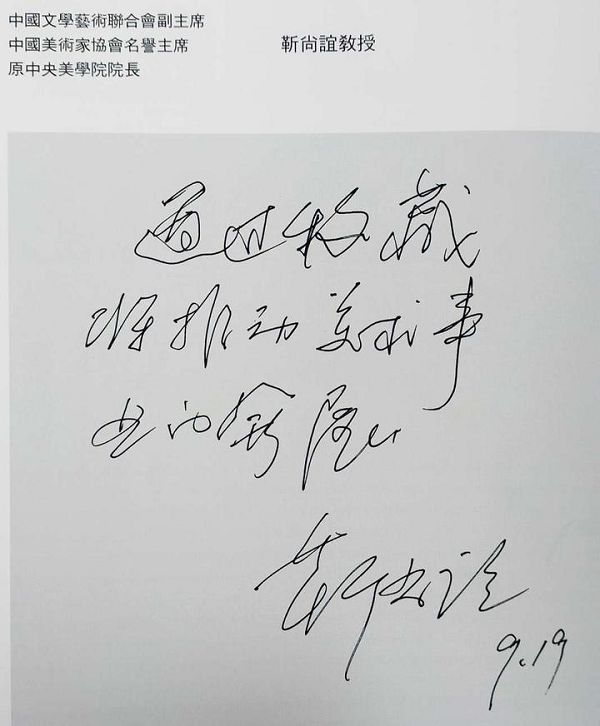 中國文學藝術聯合會副主席
中國美術家協會名譽主席
原中央美學院院長
靳尚誼教授
通过收藏
推动美术事
业的发展
靳尚谊
9.19